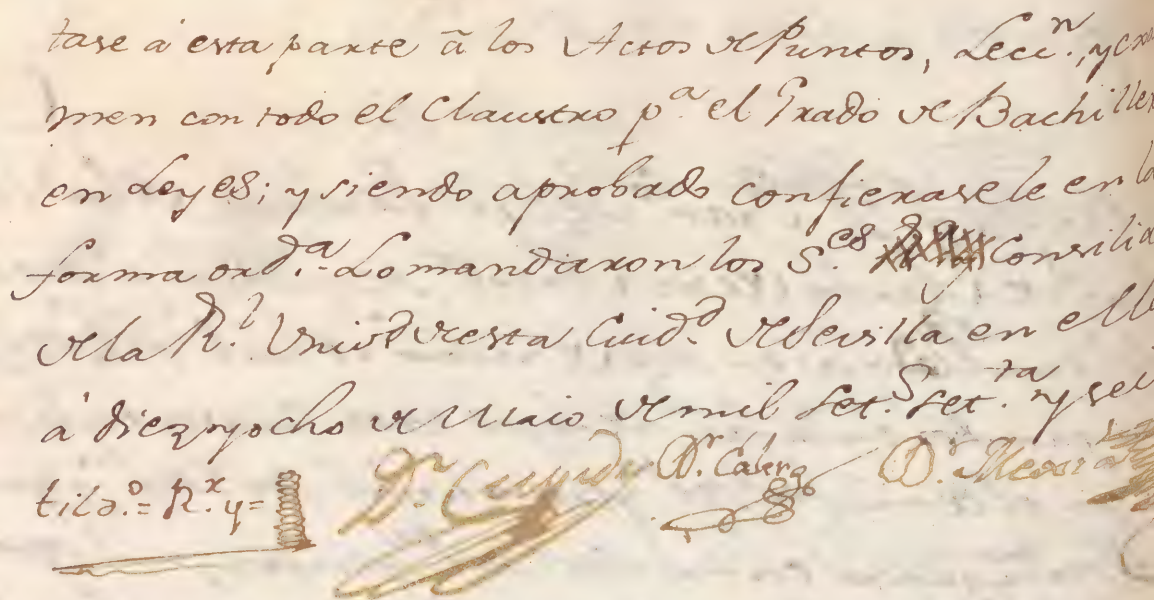 tase à esta parte ã los Actos de Puntos, Lecc.n, y exa
men con todo el Claustro p.a el Grado de Bachiller
en Leyes; y siendo aprobado confierasele en la
forma ord.a Lo mandaron los S.es Consilia
de la R.l Univ.d de esta Ciud.d de Sevilla en ella
à diez y ocho de Maio de mil set.s set.ta y se
tild.o = R.x y =
D.r D.r Cabrera D.r